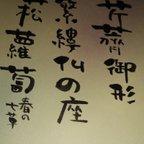 芹薺御形
繁縷仏の座
菘蘿蔔春の七草